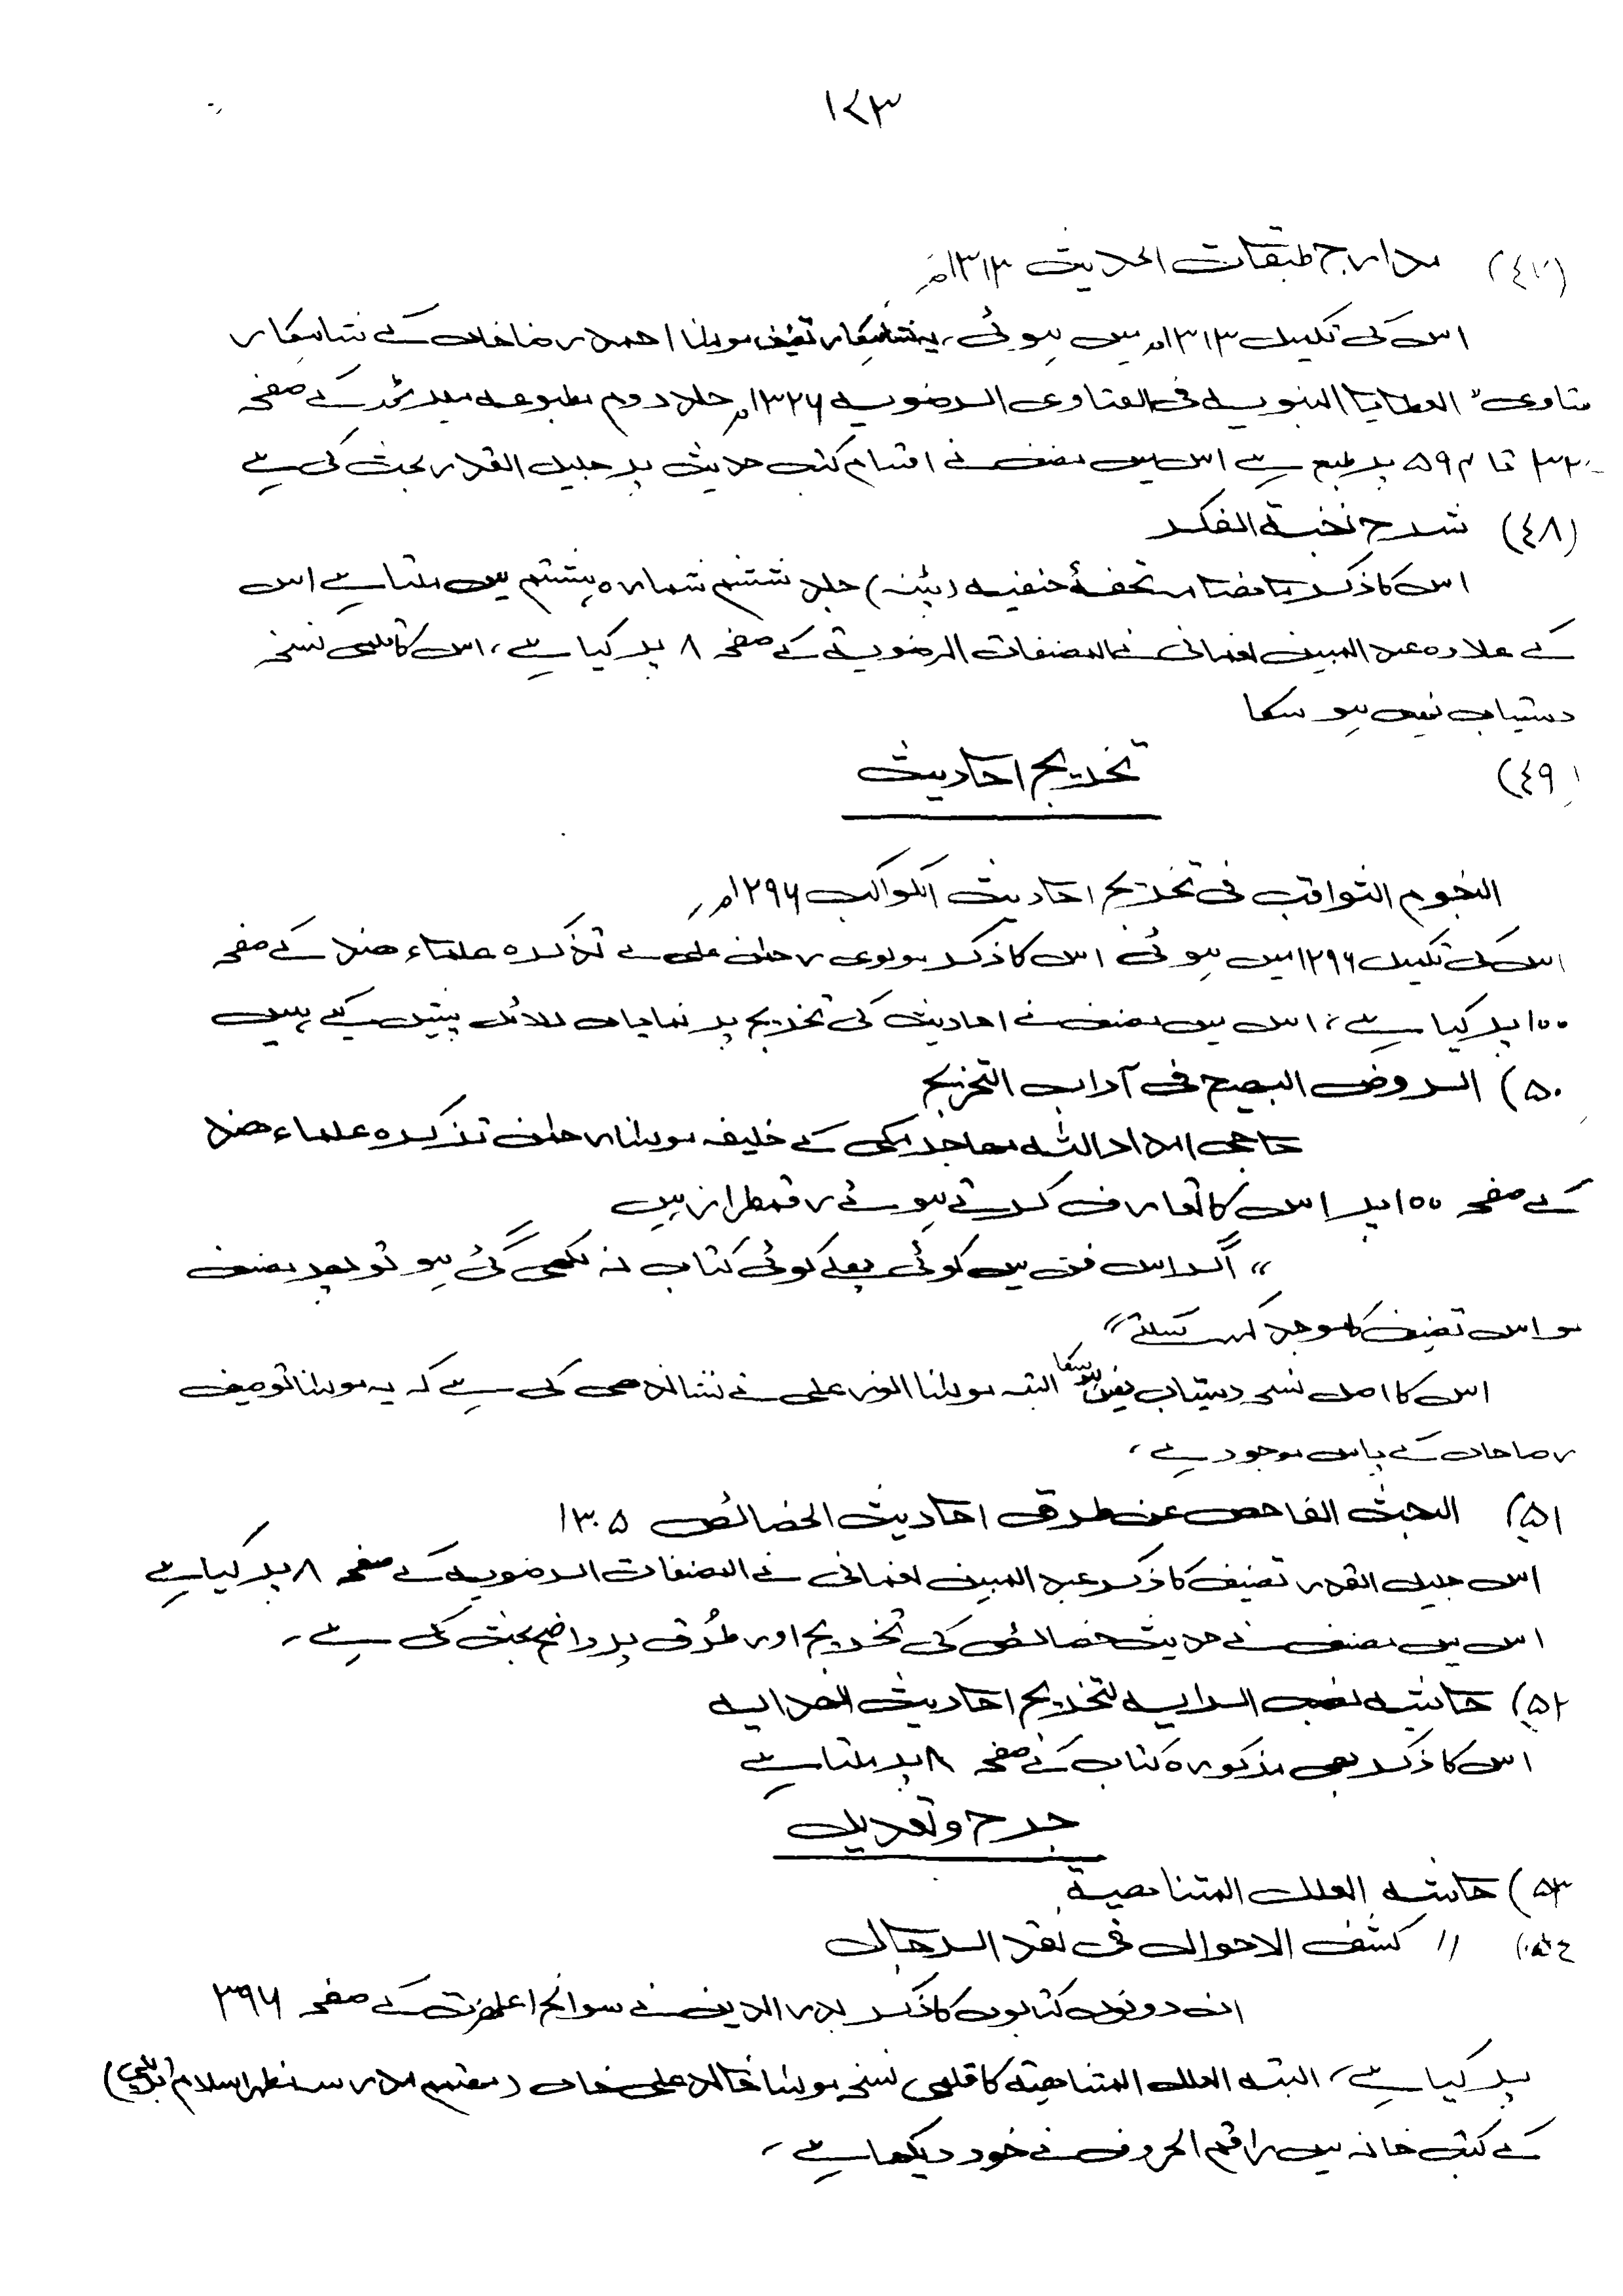 ۱۷۳
(۴۷) مدارج طبقات الحدیث ۱۳۱۳ھ
اس کی تکمیل ۱۳۱۳ھ میں ہوئی، یہ شاہکار تصنیف مولانا احمد رضا خاں کے شاہکار
فتاویٰ " العطایا النبویہ فی الفتاوی الرضویہ ۱۳۲۶ھ جلد دوم مطبوعہ میرٹھ کے صفحہ
تا ۵۹۴ پر طبع ہے اس میں مصنف نے اقسام کتب حدیث پر جلیل القدر بحث کی ہے
(۴۸) شرح نخبۃ الفکر
اس کا ذکر ماہنامہ تحفۂ حنفیہ (پٹنہ) جلد ششم شمارہ ہشتم میں ملتا ہے اس
کے علاوہ عبد المبین نعمانی نے المصنفات الرضویۃ کے صفحہ ۸ پر کیا ہے، اس کا قلمی نسخہ
دستیاب نہیں ہو سکا
(۴۹) تخریج احادیث
النجوم الثواقب فی تخریج احادیث الکواکب ۱۲۹۶ھ
اس کی تکمیل ۱۲۹۶ میں ہوئی اس کا ذکر مولوی رحمٰن علی نے تذکرہ علماء ھند کے صفحہ
۱۰۰ پر کیا ہے، اس میں مصنف نے احادیث کی تخریج پر نمایاں دلائل پیش کیے ہیں
۵۰) الروض البھیج فی آداب التخریج
حاجی امداد اللہ مہاجر مکی کے خلیفہ مولانا رحمٰن تذکرہ علماء ھند
کے صفحہ ۱۰۰ پر اس کا تعارف کرتے ہوئے رقمطراز ہیں
" اگر اس فن میں کوئی پہلے کوئی کتاب نہ لکھی گئی ہو تو پھر مصنف
کو اس تصنیف کا موجد کہہ سکتے"
اس کا اصل نسخہ دستیاب نہیں ہو سکا البتہ مولانا انور علی نے نشاندھی کی ہے کہ یہ مولانا توصیف
رضا خاں کے پاس موجود ہے،
۵۱) البحث الفاحص عن طرق احادیث الخصائص ۱۳۰۵
اس جلیل القدر تصنیف کا ذکر عبد المبین نعمانی نے المصنفات الرضویہ کے صفحہ ۸ پر کیا ہے
اس میں مصنف نے حدیث خصائص کی تخریج اور طُرق پر واضح بحث کی ہے ۔
۵۲) حاشیہ نصب الرایہ لتخریج احادیث الھدایہ
اس کا ذکر بھی مذکورہ کتاب کے صفحہ ۸ پر ملتا ہے
جرح و تعدیل
۵۳) حاشیہ العلل المتناھیۃ
۵۴) // کشف الاحوال فی نقد الرجال
ان دونوں کتابوں کا ذکر بدر الدین نے سوانح اعلحضرت کے صفحہ ۳۹۶
پر کیا ہے، البتہ العلل المتناھیۃ کا قلمی نسخہ مولانا خالد علی خاں (مہتمم مدرسہ مظہر اسلام بریلی)
کے کتب خانہ میں راقم الحروف نے خود دیکھا ہے ۔